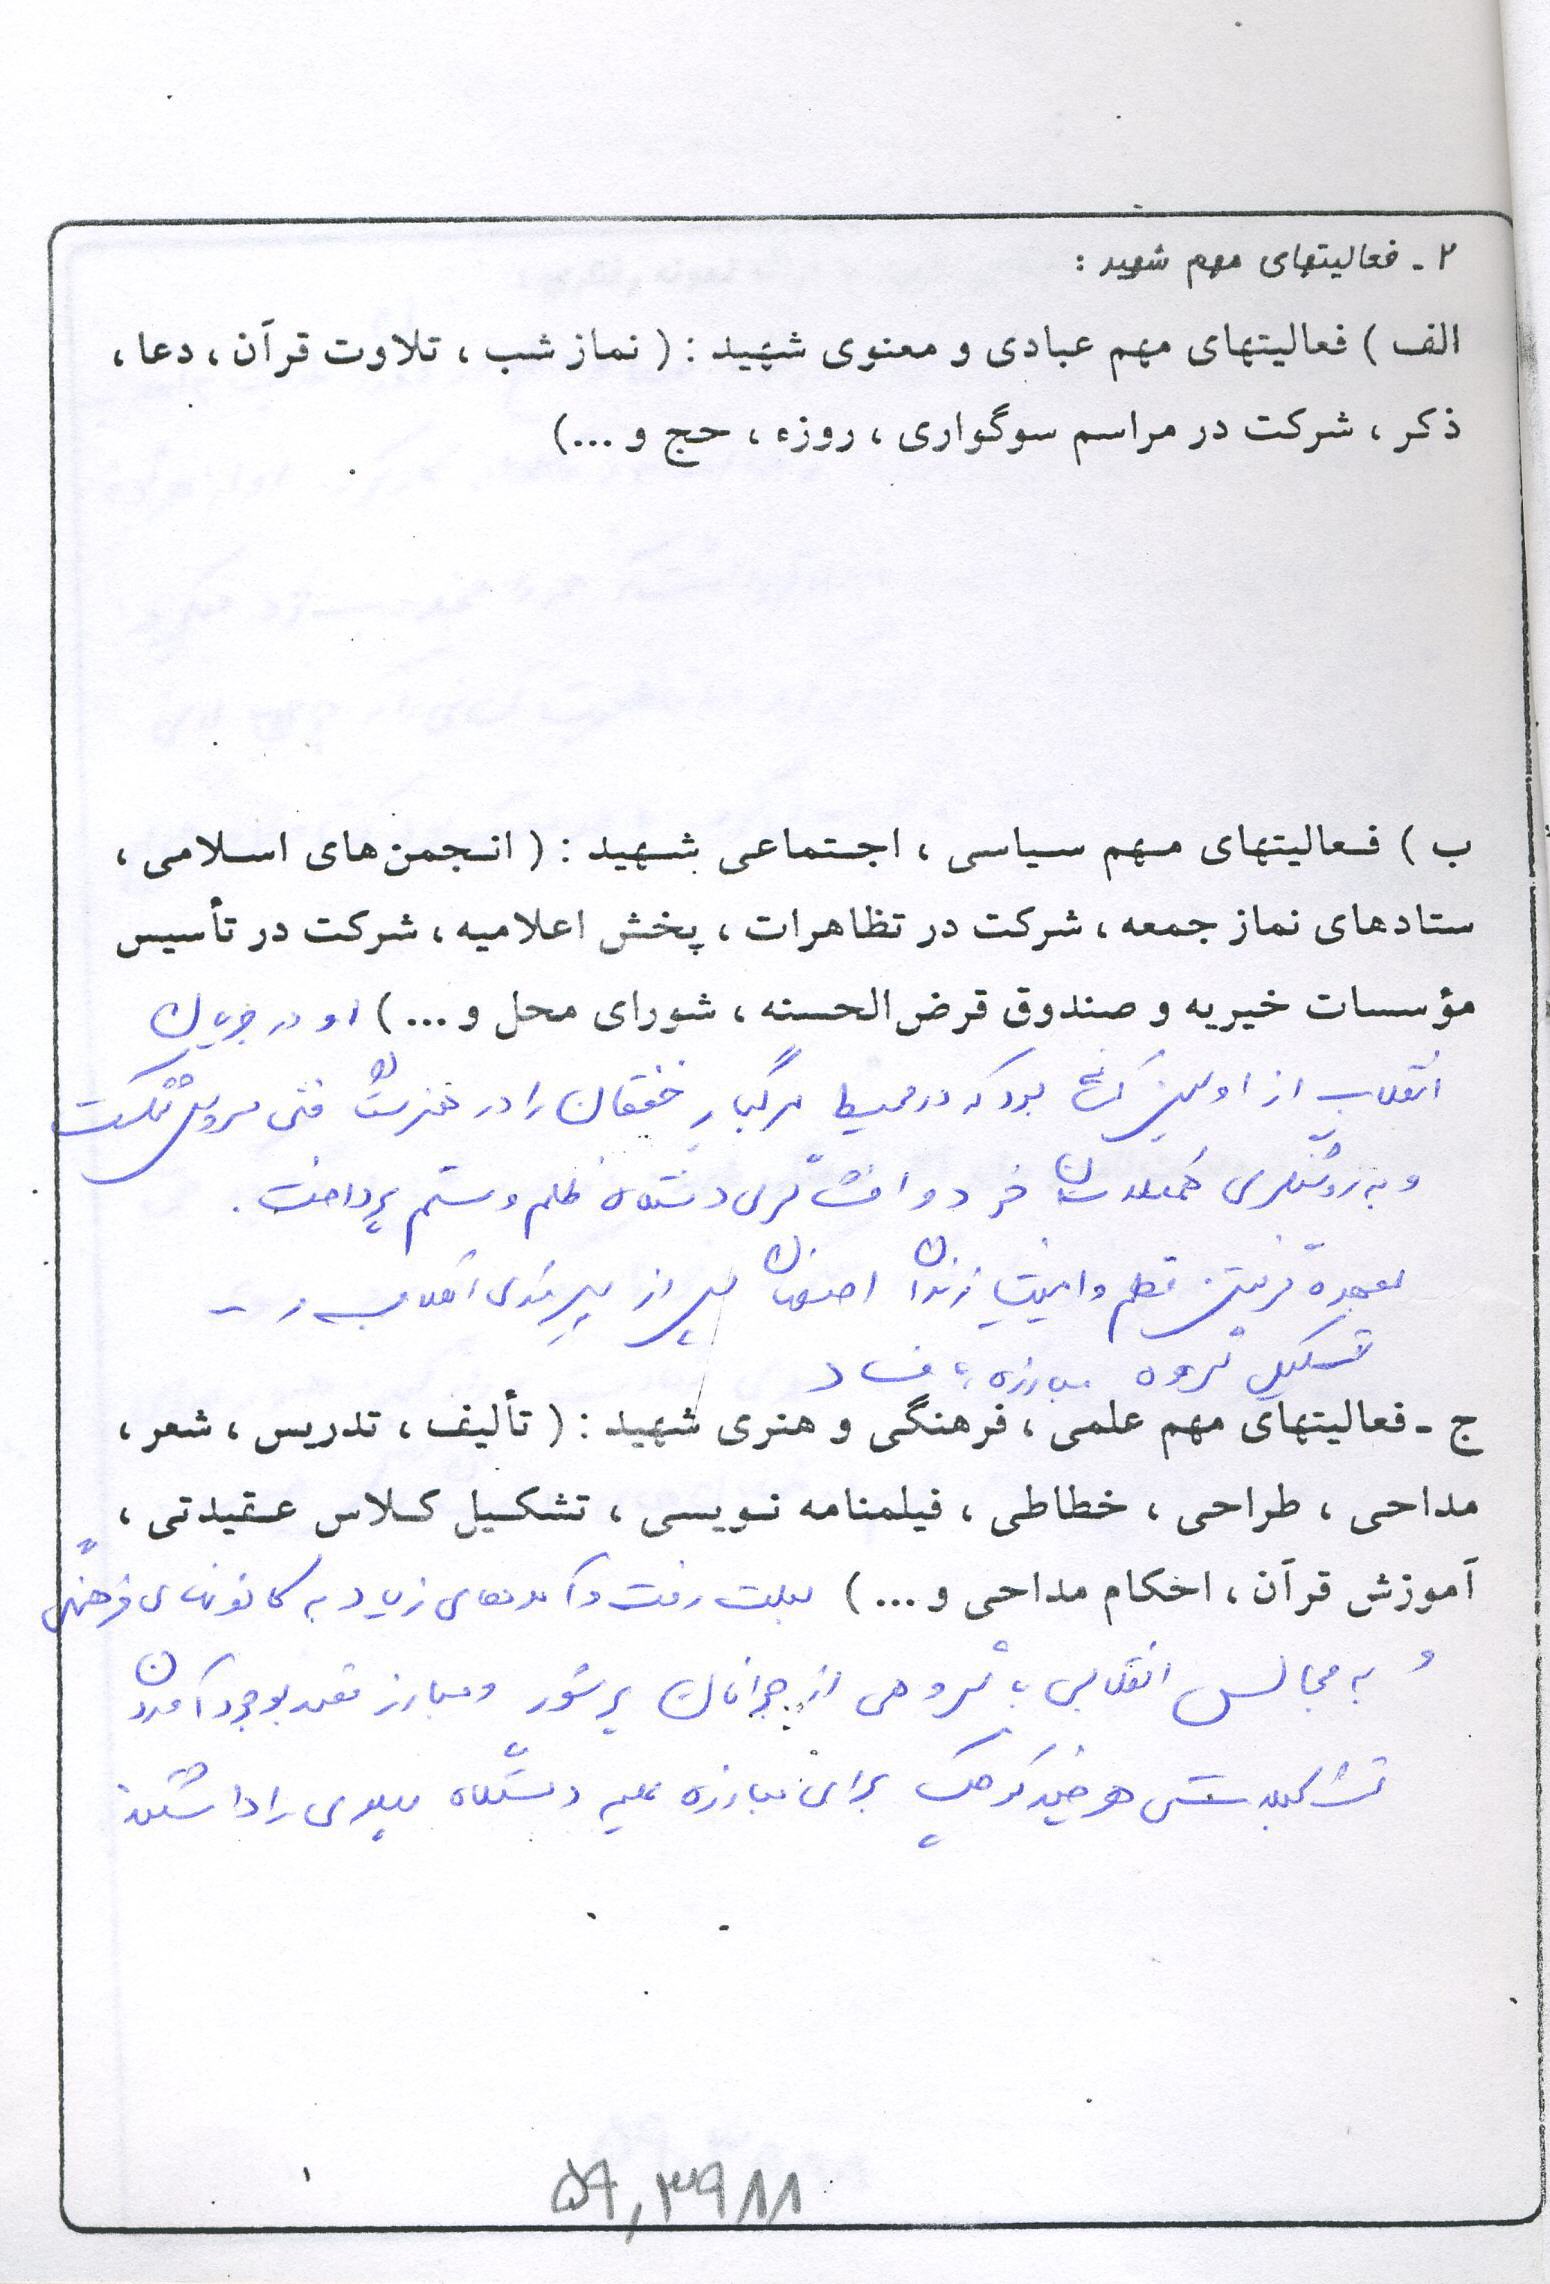 ۲ - فعالیتهای مهم شهید :
الف ) فعالیتهای مهم عبادی و معنوی شهید : ( نماز شب ، تلاوت قرآن ، دعا ،
ذکر ، شرکت در مراسم سوگواری ، روزه ، حج و ...)
ب ) فعالیتهای مهم سیاسی ، اجتماعی شهید : ( انجمن های اسلامی ،
ستادهای نماز جمعه ، شرکت در تظاهرات ، پخش اعلامیه ، شرکت در تأسیس
مؤسسات خیریه و صندوق قرض الحسنه ، شورای محل و ...) او در جریان
انقلاب از اولین کسانی بود که در محیط مرگبار خفقان را در هنرستان فنی سروش شکست
و به روشنگری همکلاسان خود و افشاگری دستگاه ظلم و ستم پرداخت .
بعهده گرفتن نظم و امنیت زندان اصفهان پس از پیروزی انقلاب
تشکیل گروه مبارزه با فساد
ج - فعالیتهای مهم علمی ، فرهنگی و هنری شهید : ( تألیف ، تدریس ، شعر ،
مداحی ، طراحی ، خطاطی ، فیلمنامه نویسی ، تشکیل کلاس عقیدتی ،
آموزش قرآن ، احکام مداحی و ... ) بعلت رفت و آمدهای زیاد به کانونهای فرهنگی
و به مجالس انقلابی با گروهی از جوانان پرشور و مبارز قصد بوجود آوردن
تشکیلاتی هر چند کوچک برای مبارزه علیه دستگاه پهلوی را داشتند
۵۹٫۳۹۸۸